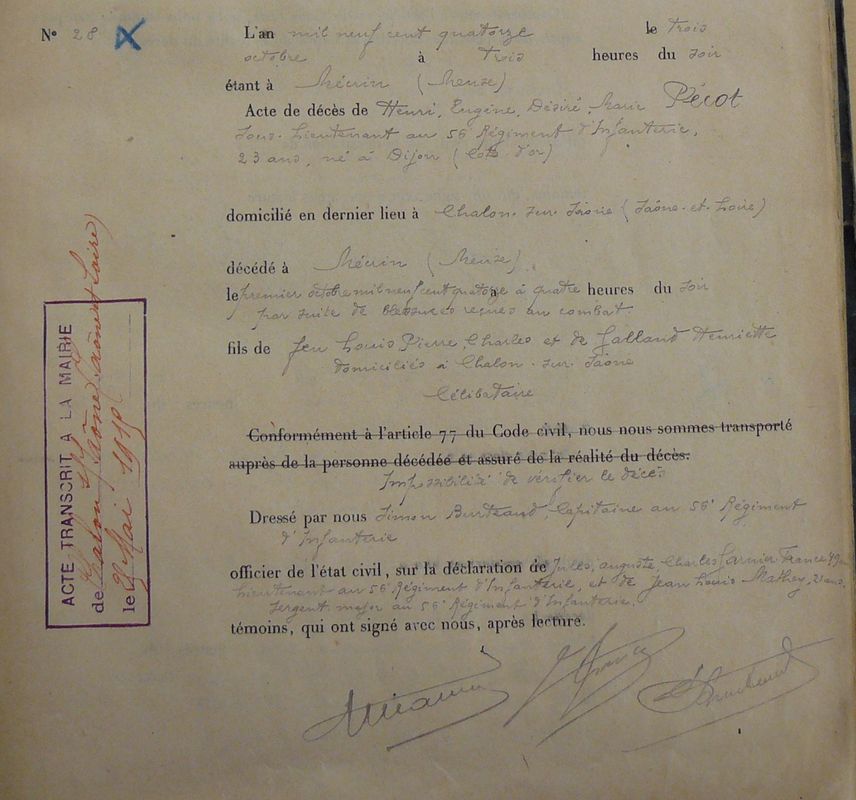 N° 28
L'an mil neuf cent quatorze le trois
octobre à trois heures du soir
étant à Mécrin (Meuse)
Acte de décès de Henri, Eugène, Désiré, Marie Pécot
Sous-Lieutenant au 56e Régiment d'Infanterie,
23 ans, né à Dijon (Côte d'or)
domicilié en dernier lieu à Chalon-sur-Saône (Saône-et-Loire)
décédé à Mécrin (Meuse)
le premier octobre mil neuf cent quatorze à quatre heures du soir
par suite de blessures reçues au combat.
fils de feu Louis Pierre, Charles et de Galland Henriette
domiciliés à Chalon-sur-Saône
Célibataire
Conformément à l'article 77 du Code civil, nous nous sommes transporté
auprès de la personne décédée et assuré de la réalité du décès.
Impossibilité de vérifier le décès
Dressé par nous Simon, Capitaine au 56e Régiment
d'Infanterie
officier de l'état civil, sur la déclaration de Jules, auguste, Charles
Lieutenant au 56e Régiment d'Infanterie, et de Jean Louis Mathey, 21 ans,
Sergent major au 56e Régiment d'Infanterie,
témoins, qui ont signé avec nous, après lecture.
ACTE TRANSCRIT A LA MAIRIE
de Chalon s/ Saône (Saône et Loire)
le Mai